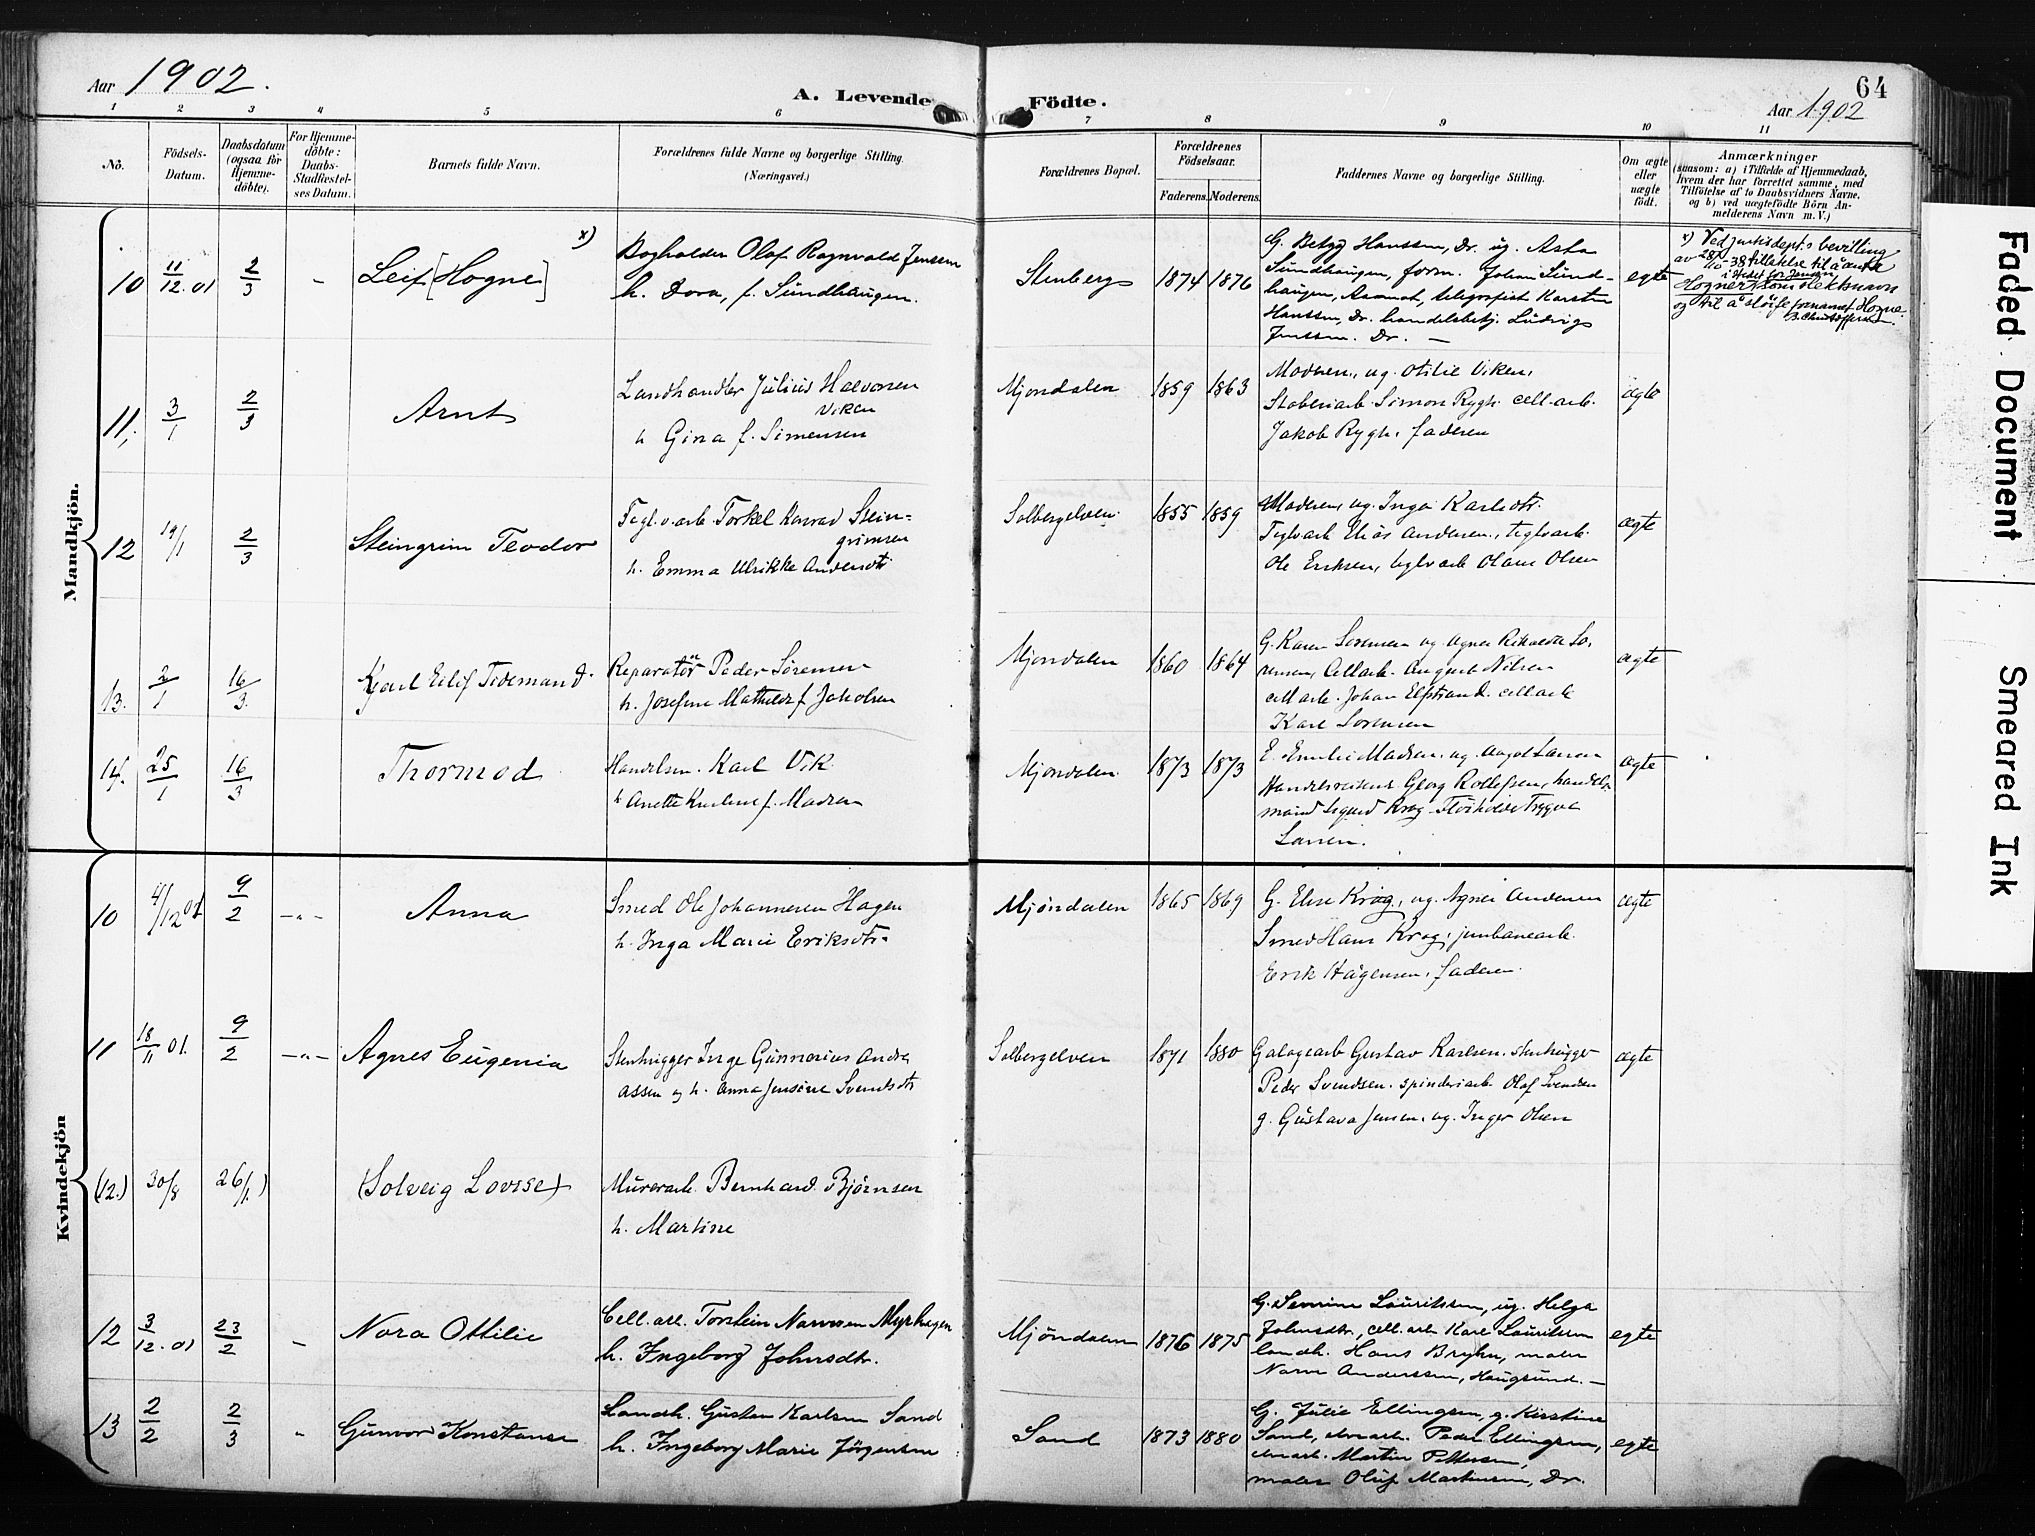 Aar 1902.
A. Levende Födte.
64
Aar 1902
1 2 3 4 5 6 7 8 9 10 11
No.
Födsels-
Datum.
Daabsdatum
(ogsaa for
Hjemme-
döbte).
For Hjemme-
döbte:
Daabs-
Stadfæstel-
ses Datum.
Barnets fulde Navn.
Forældrenes fulde Navne og borgerlige Stilling.
(Næringsvei.)
Forældrenes Bopæl.
Forældrenes
Födselsaar.
Faderens. Moderens.
Faddernes Navne og borgerlige Stilling.
Om ægte
eller
uægte
født.
Anmærkninger
(saasom: a) i Tilfælde af Hjemmedaab,
hvem der har forrettet samme, med
Tilföielse af to Daabsvidners Navne,
og b) ved uægtefödte Börn An-
melderens Navn m. V.)
Mandkjön.
10 11/12.01 2/3 - Leif [Hogne] x)
Bogholder Olaf Ragnvald Jenssen
h. Dora, f. Sundhaugen.
Stenberg 1874 1876
G. Betzy Hanssen, Dr. ug. Asta
Sundhaugen, form. Johan Sund-
haugen, telegrafist Karsten
Hanssen, Dr. handelsbetj. Ludvig
Jenssen. Dr. —
egte
x) Ved justisdepts bevilling
av 28/10-38 tillatelse til å anta
i stedet for Jenssen
Hogner som slektsnavn
og til å sløife fornavnet Hogne.
11, 3/1 2/3 Arnt
Landhandler Julius Halvorsen
Viken
h Gina f. Simensen
Mjondalen 1859 1863
Moderen, ug. Otilie Viken,
Simon Rygh. cell.arb.
Jakob Rygh, faderen
ægte
12 19/1 2/3 Steingrim Teodor
Tegl.v.arb. Torkel Konrad Stein-
grimsen
h. Emma Ulrikke Andersdtr
Solbergelven 1855 1859
Moderen, ug. Inga Karlsdtr.
Teglvarb Elias Andersen, teglvarb.
Ole Eriksen, teglvarb Olaus Olsen
ægte
13. 2/1 16/3. Karl Eilif Tidemand.
Reparatør Peder Sørensen
h. Josefine Mathilde f. Jakobsen
Mjondalen 1860 1864
G. Karen Sorensen ug. Agnes Rikarda So-
rensen, Cellarb. August Nilsen
cellarb. Johan Elfstrand. cellarb
Karl Sorensen
ægte
14. 25/1 16/3 Thormod
Handelsm. Karl Vik
h Anette f. Madsen
Mjondalen 1873 1873
E. Emilie Madsen. ug. Aagot Larsen
Handelsreisende Georg Rollefsen, handels-
mand Sigurd Krog Trygve
Larsen.
ægte
Kvindekjön
10 4/12 01 9/2 -"- Anna
Smed Ole Johannesen Hagen
h. Inga Marie Eriksdtr.
Mjöndalen 1865 1869
G. Else Krog, ug. Agnes Andersen
Smed Hans Krog, jernbanearb.
Erik Hagensen, faderen.
ægte
11 18/11 01. 9/2 -"- Agnes Eugenia
Stenhugger Inge Gunnarius Andre
assen og h. Anna Jensine Svendsdtr
Solbergelven 1871 1880
Galagearb Gustav Karlsen. stenhugger
Peder Svendsen. spinderiarb. Olaf Svendsen
g. Gustava Jensen, ug. Inger Olsen
ægte
(12.) 30/8 26/1) (Solveig Lovise)
Murerarb. Bernhard Bjørnsen
h. Martine
12 3/12.01 23/2 - Nora Ottilie
Cell.arb. Torstein Narvesen Myrhagen
h. Ingeborg Johnsdtr.
Mjöndalen 1876 1875
G. Severine Lauritssen, ug. Helga
Johnsdtr., cell.arb. Karl Lauritssen
landh. Hans Bryhn, maler
Narve Anderssen, Haugsund. —
egte
13 2/2 2/3 " Gunvor Konstanse
Landh. Gustav Karlsen Sand
h. Ingeborg Marie Jörgensen
Sand 1873 1880
G. Julie Ellingsen, g. Kirstine
Sand, Peder Ellingsen,
Martin Pettersen,
maler Oluf Martinsen, Dr.
egte
Faded Document
Smeared Ink